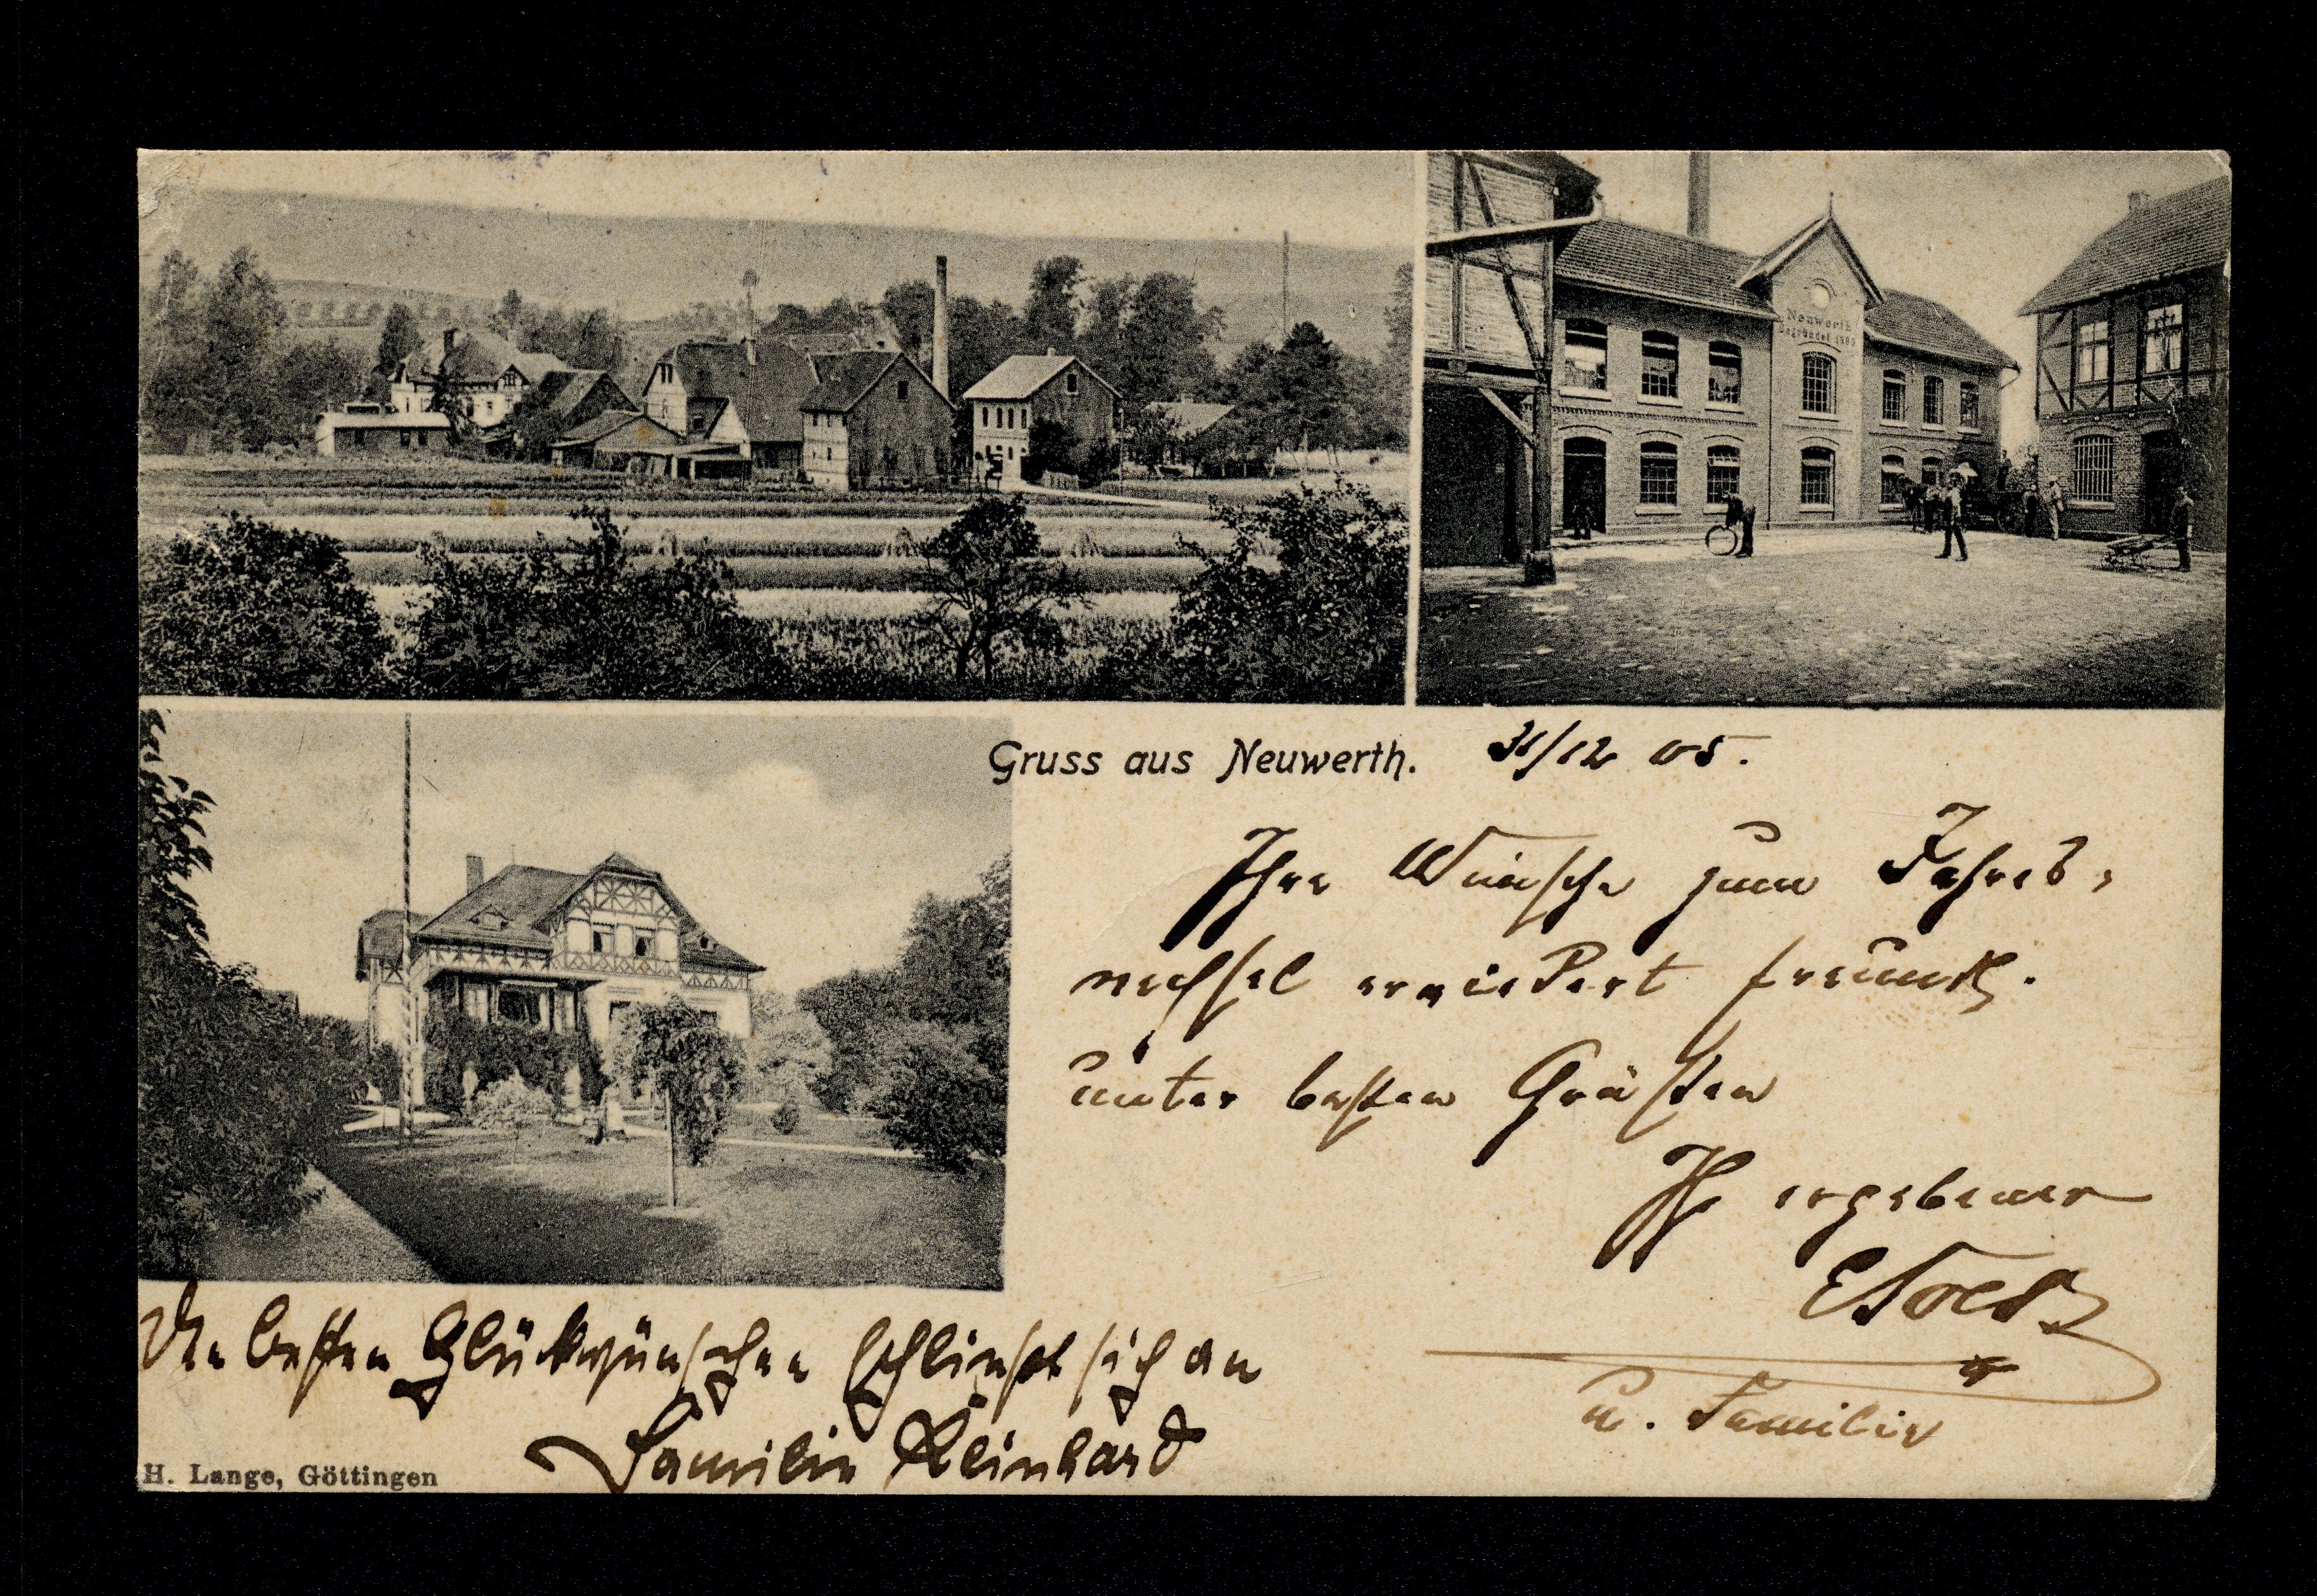 Neuwerth
Gegründet 1890
Gruss aus Neuwerth. 31/12 05.
Ihre Wünsche zum Jahres-
wechsel erwiedert freundl.
unter besten Grüßen
Ihr ergebener
u. Familie
Den besten Glückwünschen schliesst sich an
Familie Reinhard
H. Lange, Göttingen